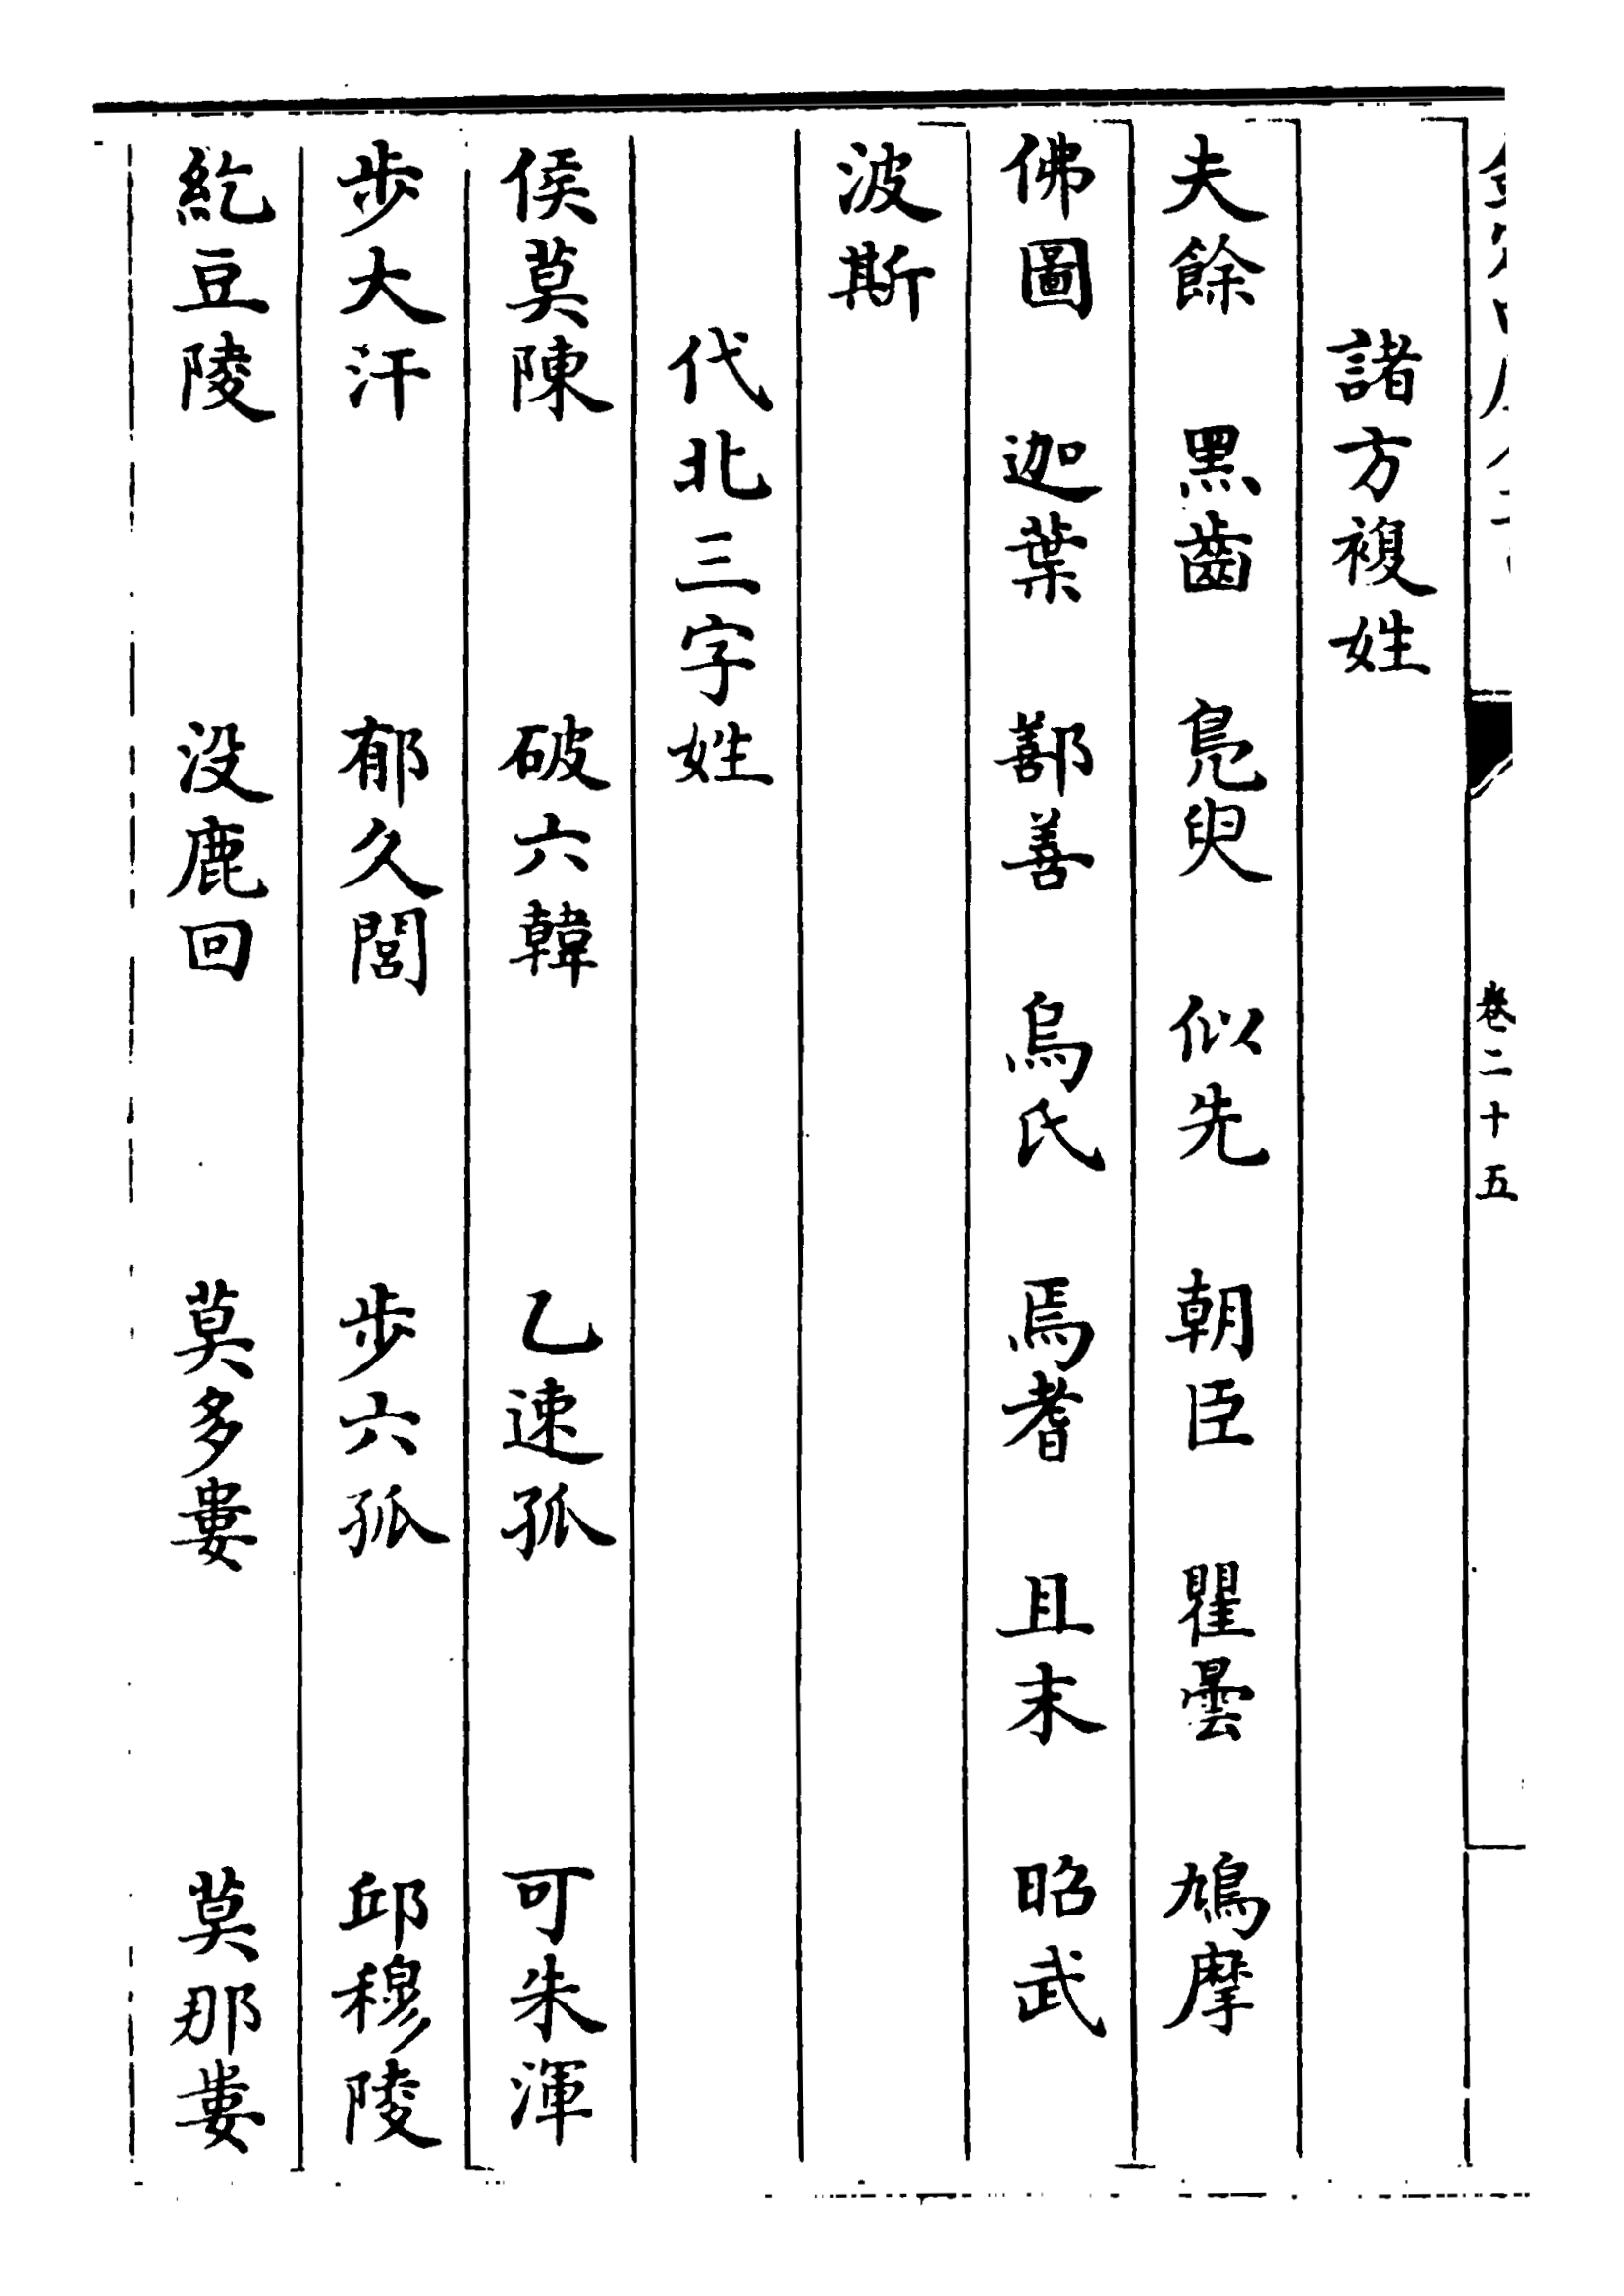 卷二十五
諸方複姓
夫餘 黑齒 鳧臾 似先 朝臣 瞿曇 鳩摩
佛圖 迦葉 鄯善 烏氏 焉耆 且末 昭武
波斯
代北三字姓
侯莫陳 破六韓 乙速孤 可朱渾
步大汗 郁久閭 步六孤 邱穆陵
紇豆陵 没鹿回 莫多婁 莫那婁